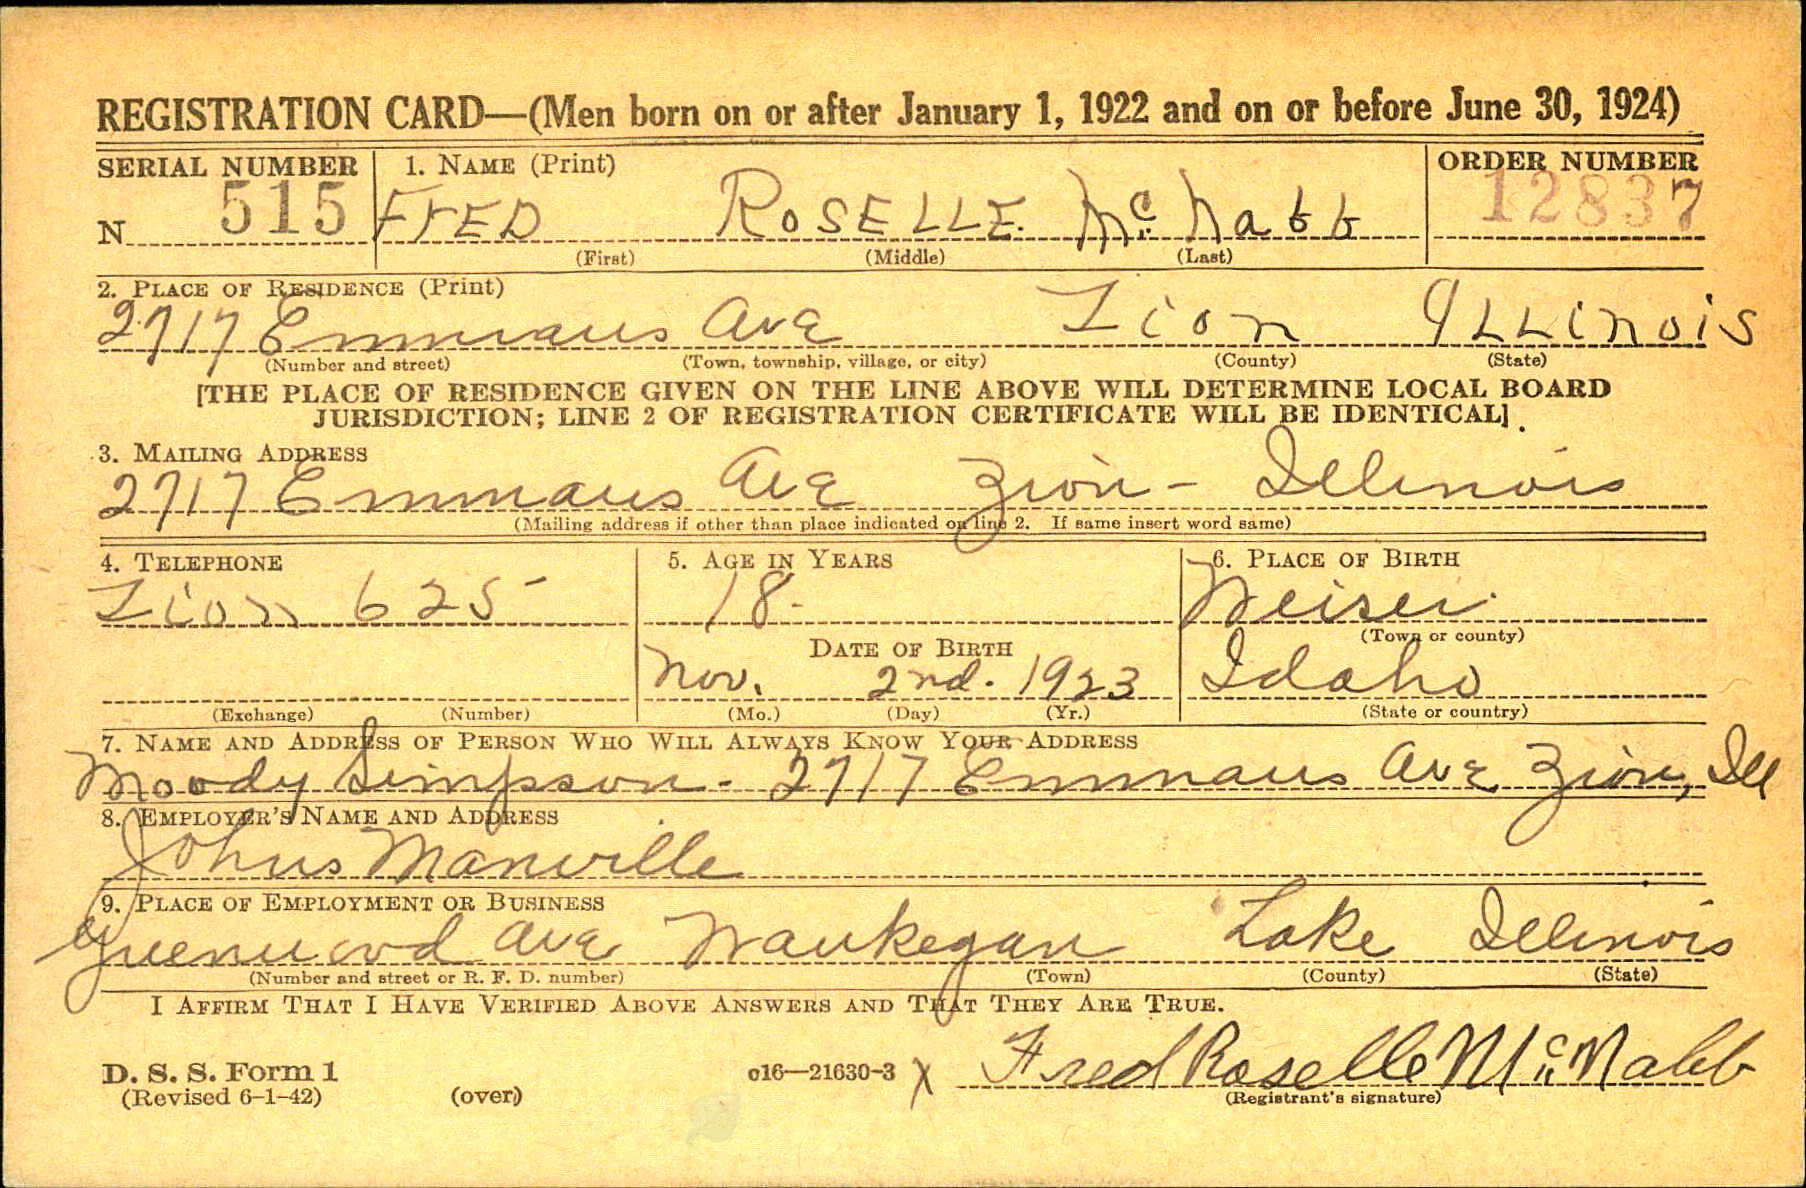 REGISTRATION CARD—(Men born on or after January 1, 1922 and on or before June 30, 1924)
SERIAL NUMBER 1. NAME (Print) ORDER NUMBER
N 515 FrED ROSELLE Mc Nabb 12837
(First) (Middle) (Last)
2. PLACE OF RESIDENCE (Print)
2717 Emmaus Ave Zion ILLinois
(Number and street) (Town, township, village, or city) (County) (State)
[THE PLACE OF RESIDENCE GIVEN ON THE LINE ABOVE WILL DETERMINE LOCAL BOARD
JURISDICTION; LINE 2 OF REGISTRATION CERTIFICATE WILL BE IDENTICAL]
3. MAILING ADDRESS
2717 Emmaus Ave Zion - Illinois
(Mailing address if other than place indicated on line 2. If same insert word same)
4. TELEPHONE 5. AGE IN YEARS 6. PLACE OF BIRTH
Zion 625 18. Weiser
(Town or county)
DATE OF BIRTH
Nov. 2nd. 1923 Idaho
(Exchange) (Number) (Mo.) (Day) (Yr.) (State or country)
7. NAME AND ADDRESS OF PERSON WHO WILL ALWAYS KNOW YOUR ADDRESS
Moody Simpson - 2717 Emmaus Ave Zion, Ill
8. EMPLOYER'S NAME AND ADDRESS
Johns Manville
9. PLACE OF EMPLOYMENT OR BUSINESS
Greenwood Ave Waukegan Lake Illinois
(Number and street or R. F. D. number) (Town) (County) (State)
I AFFIRM THAT I HAVE VERIFIED ABOVE ANSWERS AND THAT THEY ARE TRUE.
D. S. S. Form 1 c16—21630-3 X Fred Roselle Mc Nabb
(Revised 6-1-42) (over) (Registrant's signature)